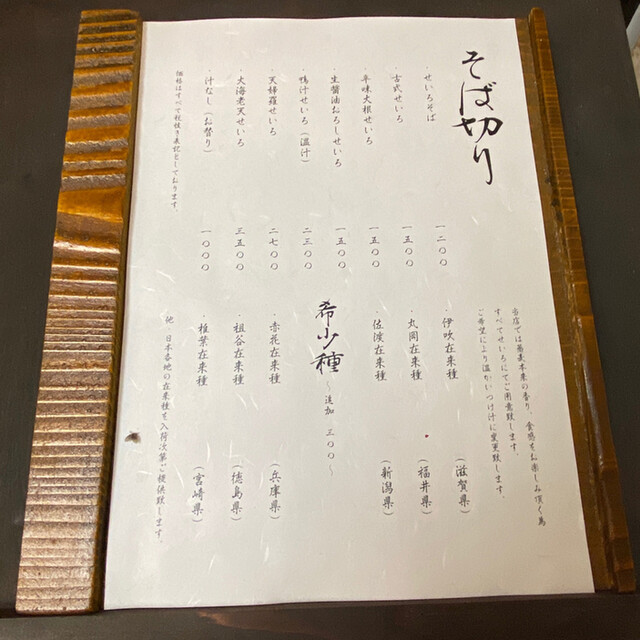 そば切り
・せいろそば 一二〇〇
・古式せいろ 一五〇〇
・辛味大根せいろ 一五〇〇
・生醤油おろしせいろ 一五〇〇
・鴨汁せいろ（温汁） 二三〇〇
・天婦羅せいろ 二七〇〇
・大海老天せいろ 三五〇〇
・汁なし（お替り） 一〇〇〇
価格はすべて税抜き表記としております。
当店では蕎麦本来の香り、食感をお楽しみ頂く為
すべてせいろにてご用意致します。
ご希望により温かいつけ汁に変更致します。
・伊吹在来種 （滋賀県）
・丸岡在来種 （福井県）
・佐渡在来種 （新潟県）
希少種 〜追加 三〇〇〜
・赤花在来種 （兵庫県）
・祖谷在来種 （徳島県）
・椎葉在来種 （宮崎県）
他、日本各地の在来種を入荷次第ご提供致します。